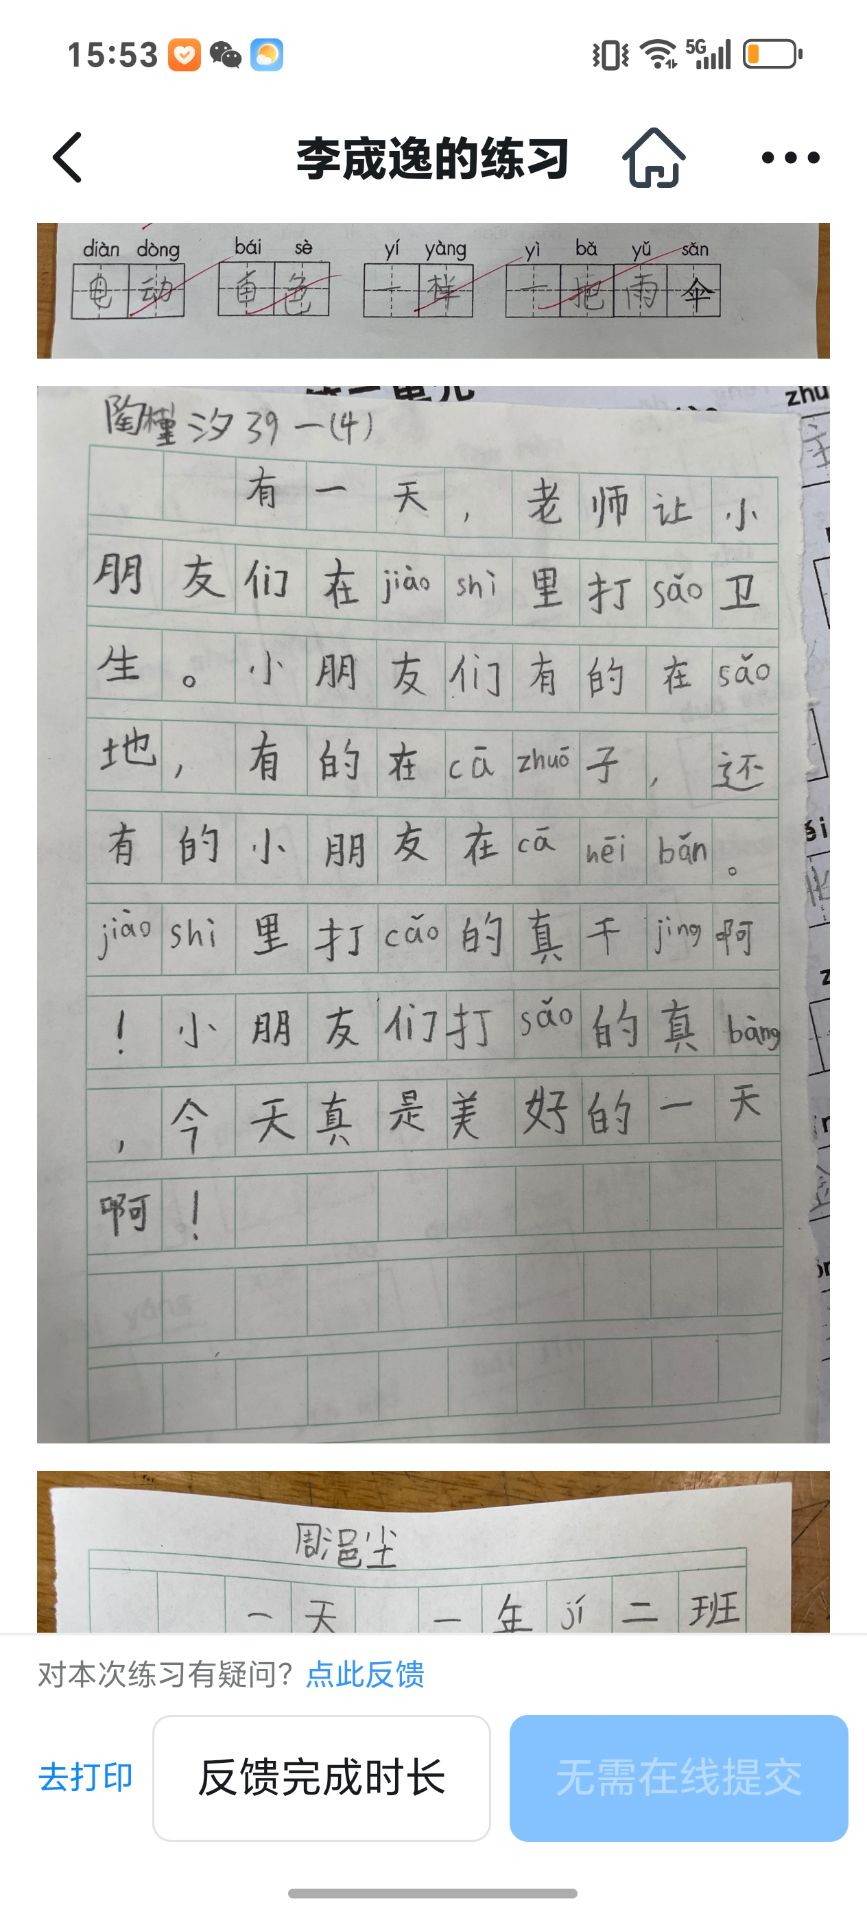 15:53 5G
李宬逸的练习
diàn dòng bái sè yí yàng yì bǎ yǔ sǎn
电 动 白 色 一 样 一 把 雨 伞
zhu
陶槿汐 39 一(4)
有一天，老师让小
朋友们在jiào shì里打sǎo卫
生。小朋友们有的在sǎo
地，有的在cā zhuō子，还
有的小朋友在cā hēi bǎn。
jiào shì里打cǎo的真干jìng啊
！小朋友们打sǎo的真bàng
，今天真是美好的一天
啊！
周浥尘
一天 一年jí二班
对本次练习有疑问？点此反馈
去打印 反馈完成时长 无需在线提交